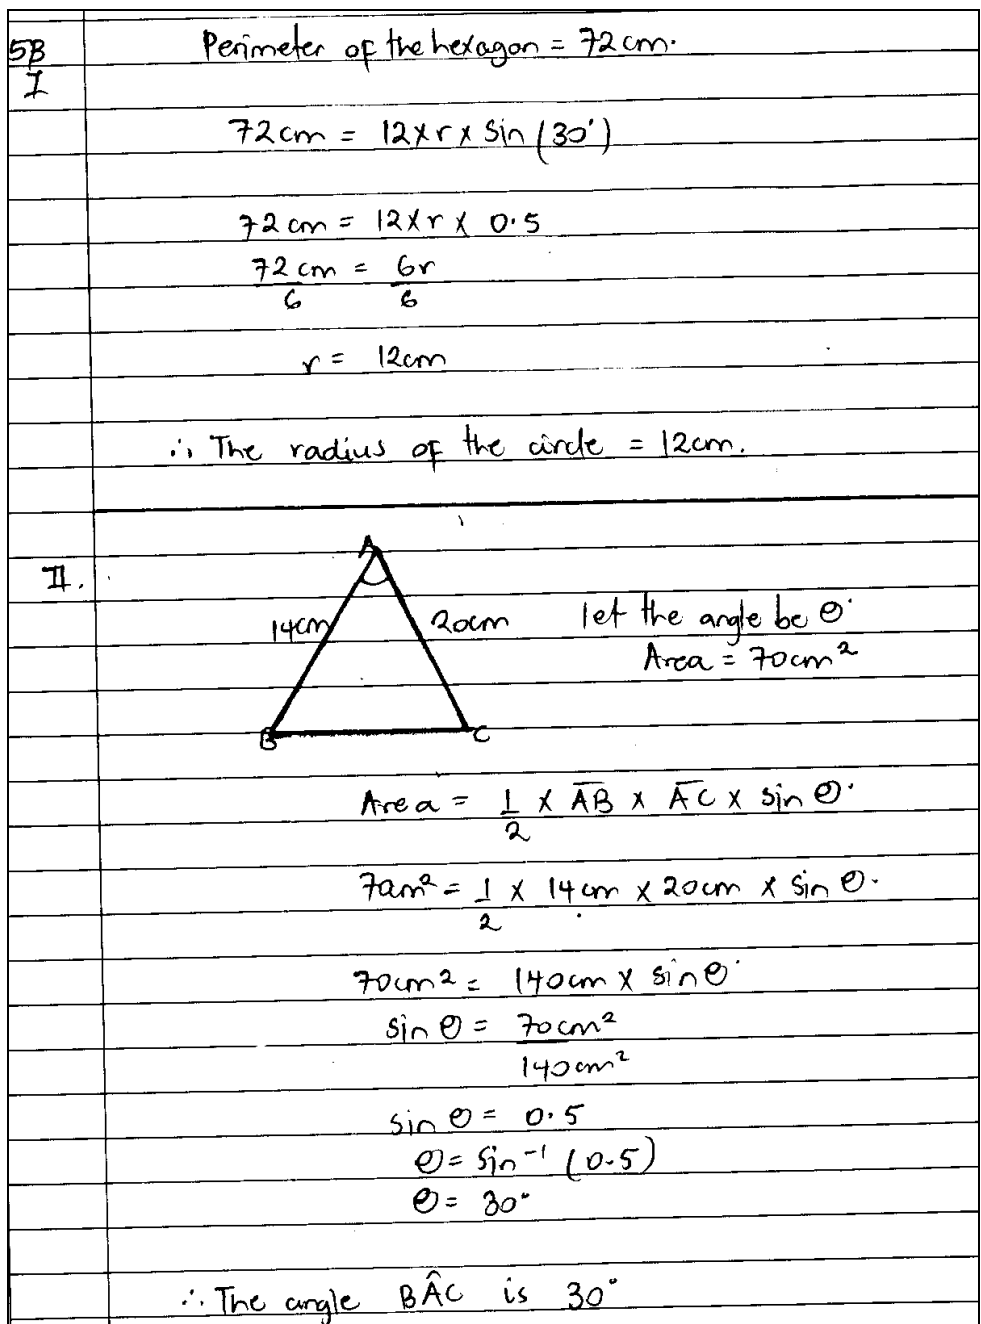 5B Perimeter of the hexagon = 72cm.
I
72cm = 12×r×Sin (30°)
72cm = 12×r× 0.5
72cm = 6r
6 6
r = 12cm
∴ The radius of the circle = 12cm.
II.
A
14cm 20cm let the angle be θ°
Area = 70cm²
B C
Area = 1/2 × AB × AC × sin θ°
7cm² = 1/2 × 14cm × 20cm × sin θ.
70cm² = 140cm × sinθ°
sin θ = 70cm²
140cm²
sin θ = 0.5
θ = Sin⁻¹ (0.5)
θ = 30°
∴ The angle BÂC is 30°